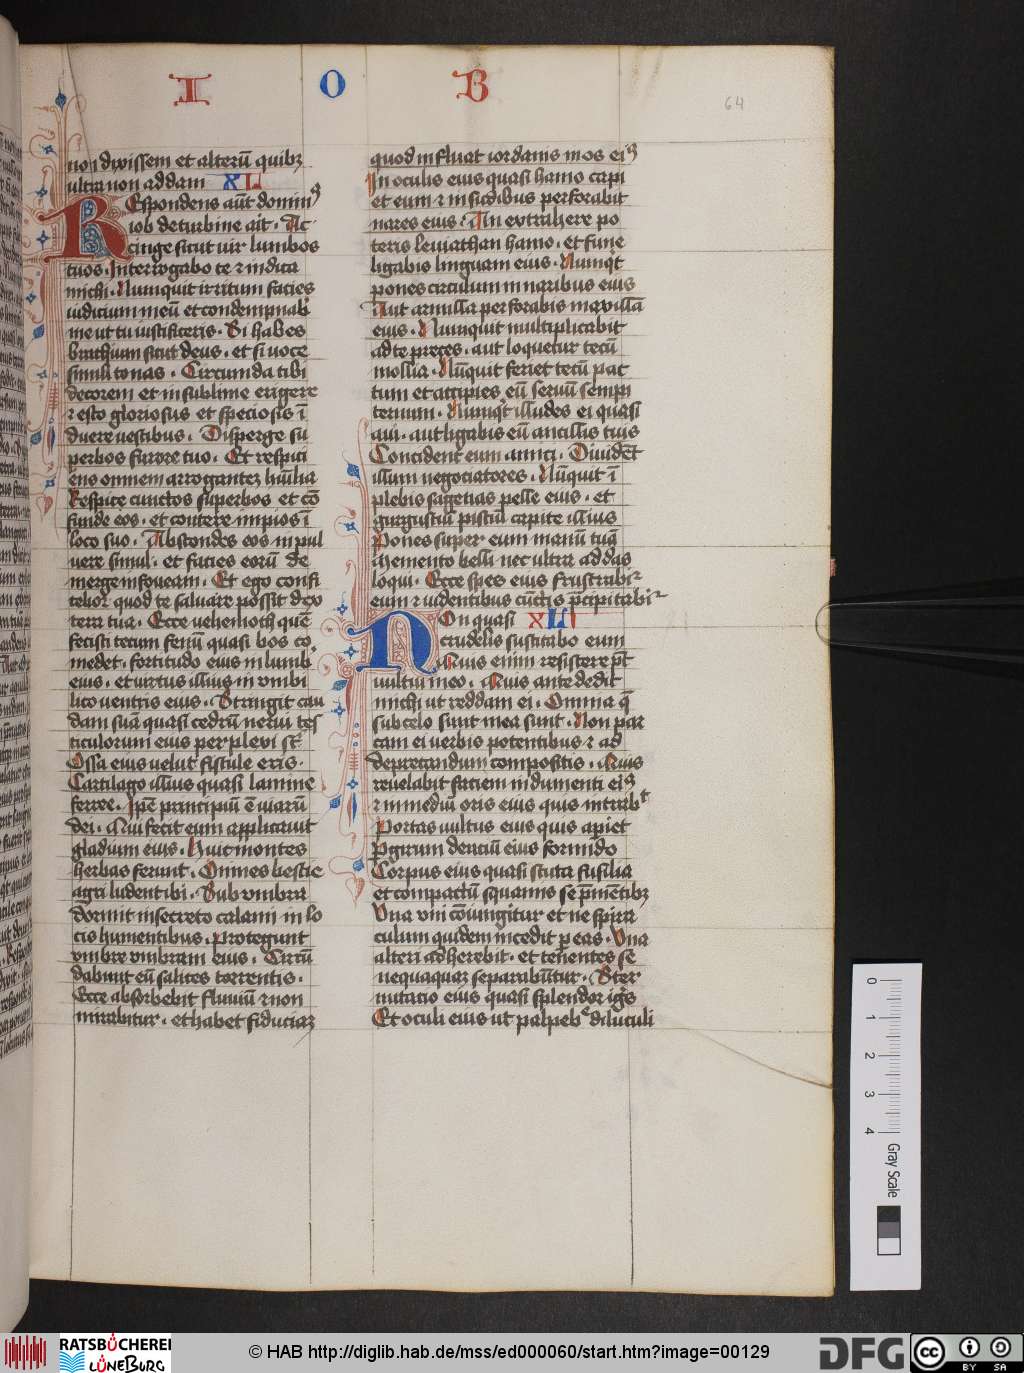 I O B
64
non dixissem et alterū quibꝫ
ultra non addam XL
REspondens aūt dominꝰ
iob de turbine ait · Ac
cinge sicut vir lumbos
tuos · Interrogabo te ⁊ indica
michi · Numquit irritum facies
iudicium meū et condempnabiˢ
me ut tu iustificeris · Si habes
brachium sicut deus · et si voce
simili tonas · Circumda tibi
decorem et in sublime erigere
⁊ esto gloriosus et speciosis ī
duere vestibus · Disperge su
perbos furore tuo · Et respici
ens omnem arrogantez hūilia
Respice cunctos superbos et cō
funde eos · et contere impios ī
loco suo · Abscondes eos in pul
vere simul · et facies eorū de
merge in foveam · Et ego confi
tebor quod te salvare possit dex
tera tua · Ecce vehemoth quē
fecisti tecum fenū quasi bos co
medet · fortitudo eius in lumbˢ
eius · et virtus illius in vmbi
lico ventris eius · Stringit cau
dam suā quasi cedrū nervi tes
ticulorum eius perplexi sūt
Ossa eius velut fistule eris ·
Cartilago illius quasi lamine
ferree · Ipse principiū ē viarū
dei · Qui fecit eum applicavit
gladium eius · Huic montes
herbas ferunt · Omnes bestie
agri ludent ibi · Sub vmbra
dormit in secreto calami in lo
cis humentibus · protegunt
vmbre vmbram eius · Circū
dabunt eū salices torrentis ·
Ecce absorbebit fluviū ⁊ non
mirabitur · et habet fiduciaꝫ
quod influat iordanis in os eiꝰ
In oculis eius quasi hamo capi
et eum ⁊ in sudibus perforabit
nares eius · An extrahere po
teris leviathan hamo · et fune
ligabis linguam eius · Numqͥt
pones circulum in naribus eius
Aut armilla perforabis maxillā
eius · Numquit multiplicabit
ad te preces · aut loquetur tecū
mollia · Nūquit feriet tecū pac
tum et accipies eū servū sempi
ternum · Numqͥt illudes ei quasi
avi · aut ligabis eū ancillis tuis
Concident eum amici · Dividēt
illum negociatores · Nūquit ī
plebis sagenas pelle eius · et
gurgustiū pisciū capite illius
Pones super eum manū tuā
Memento belli nec ultra addas
loqui · Ecce spes eius frustrabiᵗ
eum ⁊ videntibus cūctis p̄cipitabiᵗ
NOn quasi XLI
crudelis suscitabo eum
Quis enim resistere pōt
vultui meo · Quis ante dedit
michi ut reddam ei · Omnia q̄
sub celo sunt mea sunt · Non par
cam ei verbis potentibus ⁊ ad
deprecandum compositis · Quis
revelabit faciem indumenti eiꝰ
⁊ in mediū oris eius quis intrabᵗ
Portas vultus eius quis apiet
P girum denciū eius formido
Corpus eius quasi scuta fusilia
et compactū squamis se p̄mētibꝫ
Vna vni cōiungitur et ne spira
culum quidem incedit p eas · Vna
alteri adherebit · et tenentes se
nequaquam separabūtur · Ster
nutacio eius quasi splendor igͥs
Et oculi eius ut palpebᵉ diluculi
0 1 2 3 4
Gray Scale
RATSBÜCHEREI
LÜNEBURG
© HAB http://diglib.hab.de/mss/ed000060/start.htm?image=00129
DFG
cc BY SA